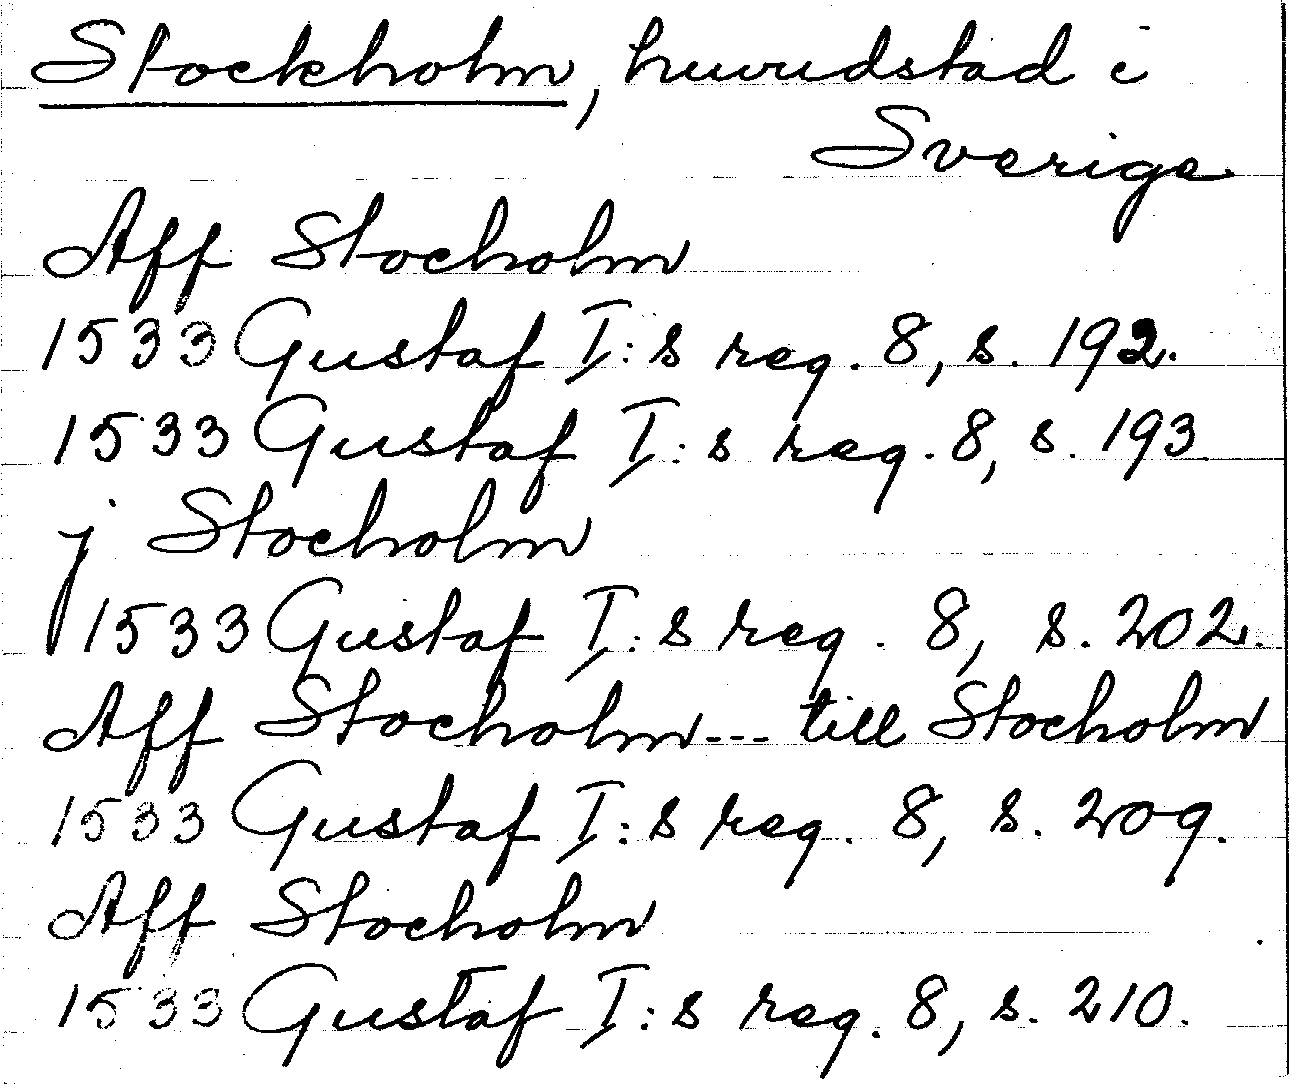 Stockholm, huvudstad i
Sverige
Aff Stocholm
1533 Gustaf I:s reg. 8, s. 192.
1533 Gustaf I:s reg. 8, s. 193
j Stocholm
1533 Gustaf I:s reg. 8, s. 202.
Aff Stocholm--- till Stocholm
1533 Gustaf I:s reg. 8, s. 209.
Aff Stocholm
1533 Gustaf I:s reg. 8, s. 210.